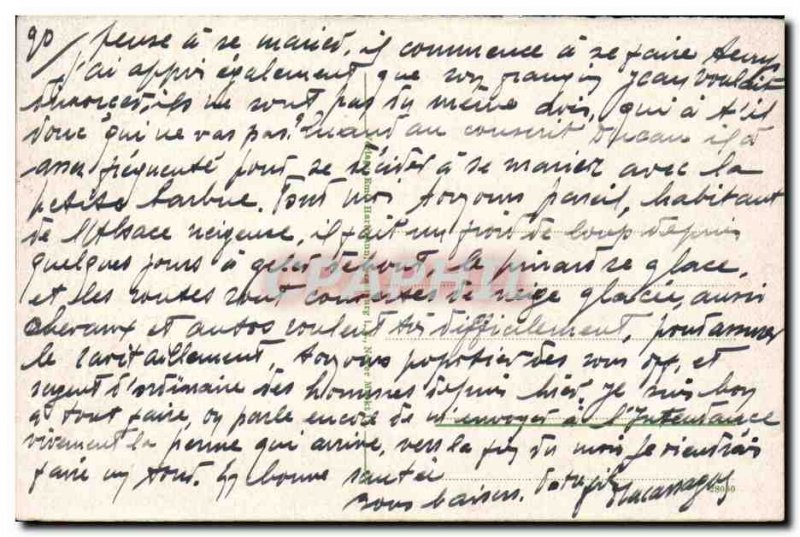 pense à se marier, il commence à se faire
J'ai appris également que son frangin Jean voulait
divorcer, ils ne sont pas du même avis, qui a t'il
donc qui ne vas pas? Quand au conscrit il a
assez fréquenté pour se décider à se marier avec la
petite barbue. Tout moi toujours pareil, habitant
de l'Alsace neigeuse, il fait un froid de loup depuis
quelques jours à geler debout, le pinard se glace,
et les routes sont couvertes de neige glacée, aussi
chevaux et autos roulent très difficilement, pour assurer
le ravitaillement, toujours popotier des sous off, et
sergent d'ordinaire des hommes depuis hier. Je suis bon
à tout faire, on parle encore de m'envoyer à l'Intendance
vivement la perme qui arrive, vers la fin du mois je viendrais
faire un tour. En bonne santé
bons baisers.
CPARAMA